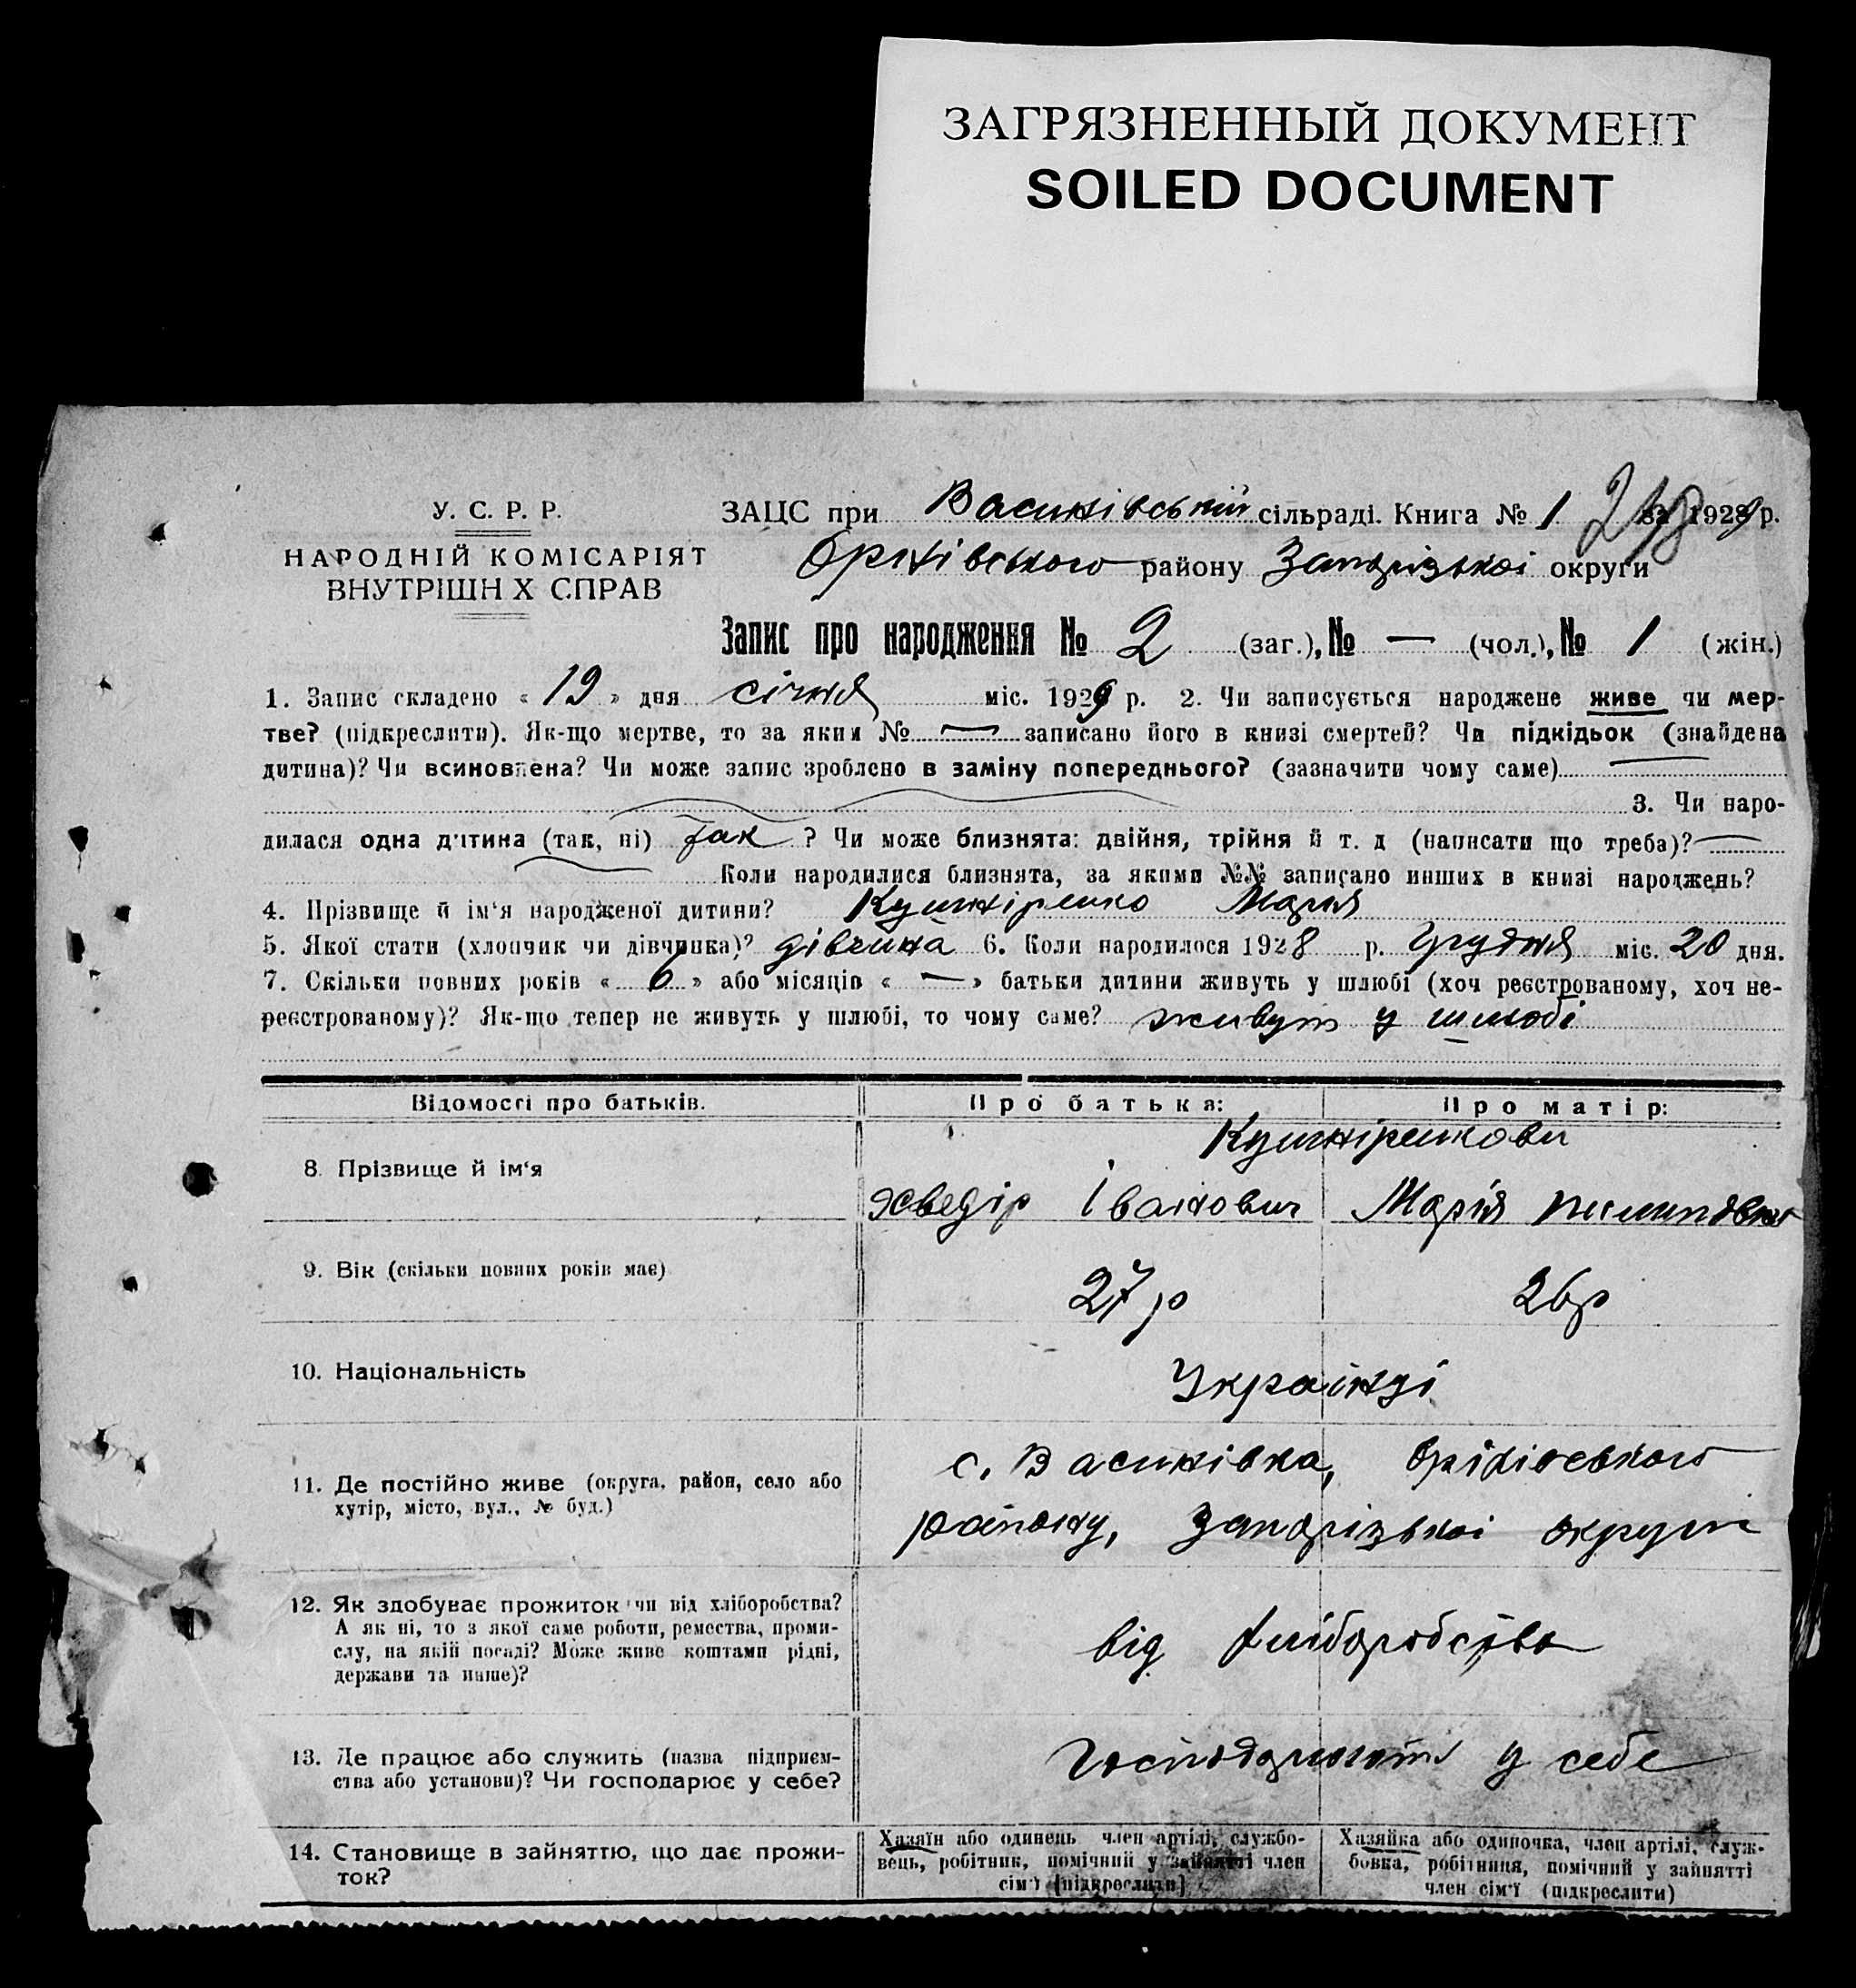 ЗАГРЯЗНЕННЫЙ ДОКУМЕНТ
SOILED DOCUMENT
У. С. Р. Р.
НАРОДНІЙ КОМІСАРІЯТ
ВНУТРІШН Х СПРАВ
ЗАЦС при Васинівській сільраді. Книга № 1 за 1929 р.
Оріхівського району Запорізької округи
Запис про народження № 2 (заг.), № — (чол.), № 1 (жін.)
1. Запис складено « 19 » дня січня міс. 1929 р. 2. Чи записується народжене живе чи мер-
тве? (підкреслити). Як-що мертве, то за яким № — записано його в книзі смертей? Чи підкідьок (знайдена
дитина)? Чи всиновлена? Чи може запис зроблено в заміну попереднього? (зазначити чому саме) —
3. Чи наро-
дилася одна дитина (так, ні) так ? Чи може близнята: двійня, трійня й т. д (написати що треба)? —
Коли народилися близнята, за якими №№ записано инших в книзі народжень?
4. Прізвище й ім'я народженої дитини? Кушніренко Марія
5. Якої стати (хлопчик чи дівчинка)? дівчина 6. Коли народилося 1928 р. Грудня міс. 20 дня.
7. Скільки повних років « 6 » або місяців « — » батьки дитини живуть у шлюбі (хоч реєстрованому, хоч не-
реєстрованому)? Як-що тепер не живуть у шлюбі, то чому саме? живуть у шлюбі
Відомості про батьків.
Про батька:
Про матір:
Кушніренкови
8. Прізвище й ім'я
Хведір Іванович
Марія
9. Вік (скільки повних років має)
27 р
26 р
10. Національність
Українці
11. Де постійно живе (округа, район, село або
хутір, місто, вул., № буд.)
с. Васинівка, Оріхівського
району, Запорізької округи
12. Як здобуває прожиток чи від хліборобства?
А як ні, то з якої саме роботи, ремества, проми-
слу, на якій посаді? Може живе коштами рідні,
держави та инше)?
від хліборобства
13. Де працює або служить (назва підприєм-
ства або установи)? Чи господарює у себе?
Господарюють у себе
14. Становище в зайняттю, що дає прожи-
ток?
Хазяїн або одинець член артілі, службо-
вець, робітник, помічний у зайнятті член
сім'ї [підкреслити]
Хазяйка або одиночка, член артілі, служ-
бовка, робітниця, помічний у зайнятті
член сім'ї (підкреслити)